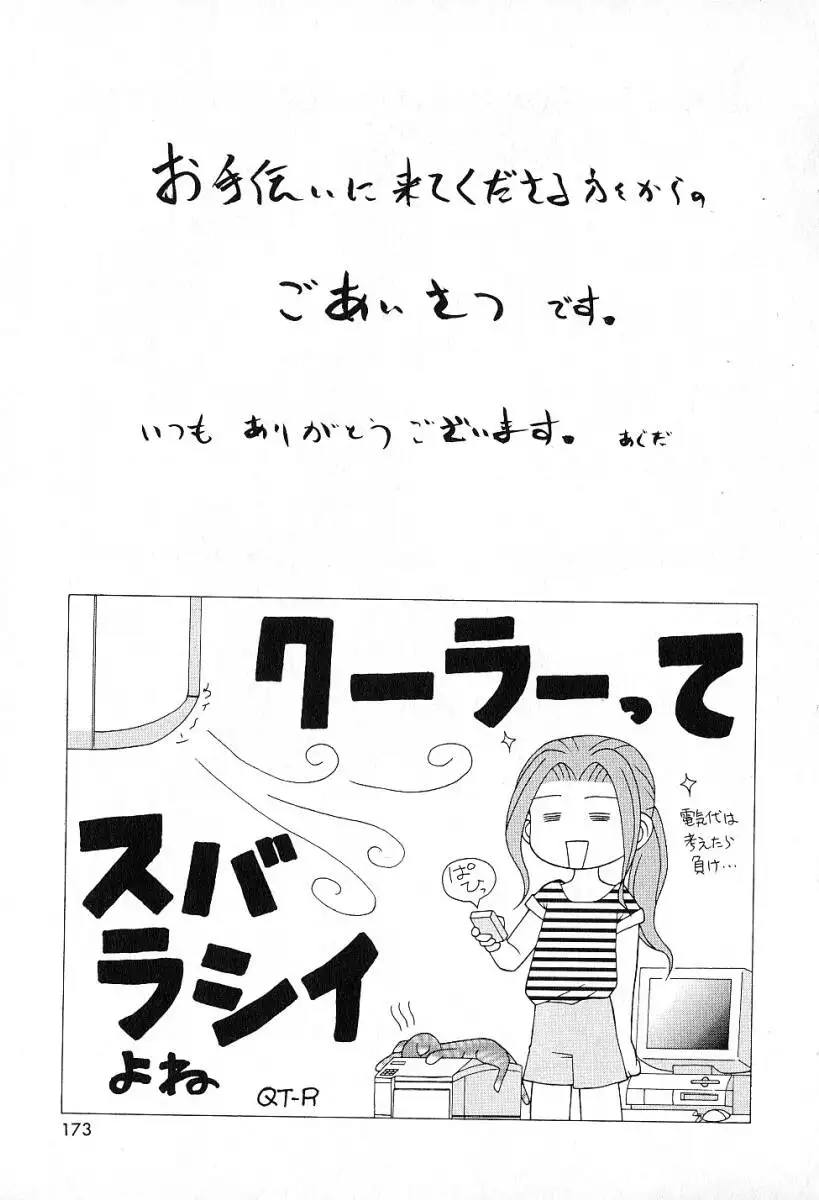 お手伝いに来てくださる方々からの
ごあいさつ です。
いつも ありがとうございます。 あぐだ
クーラーって
スバ
ラシイ
よね
QT-R
ぱひっ
電気代は
考えたら
負け…
173